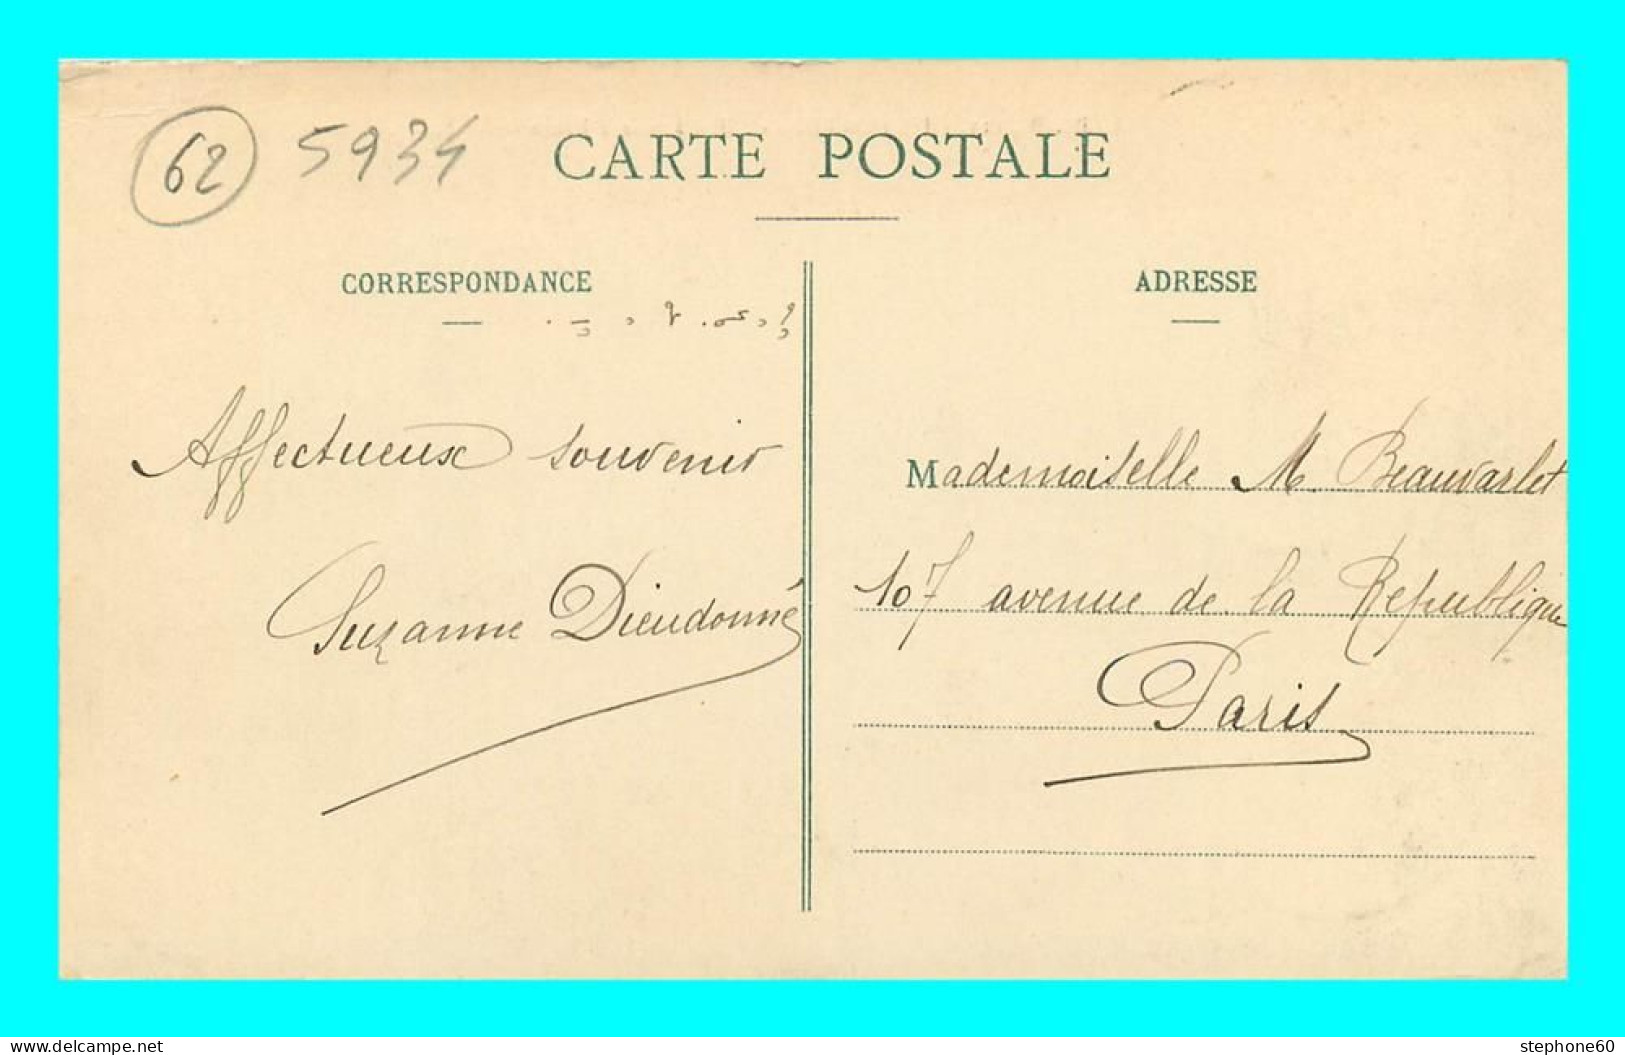 62 5934
CARTE POSTALE
CORRESPONDANCE
Affectueux souvenir
Suzanne Dieudonné
ADRESSE
Mademoiselle M. Beauvarlet
107 avenue de la République
Paris
www.delcampe.net
stephone60